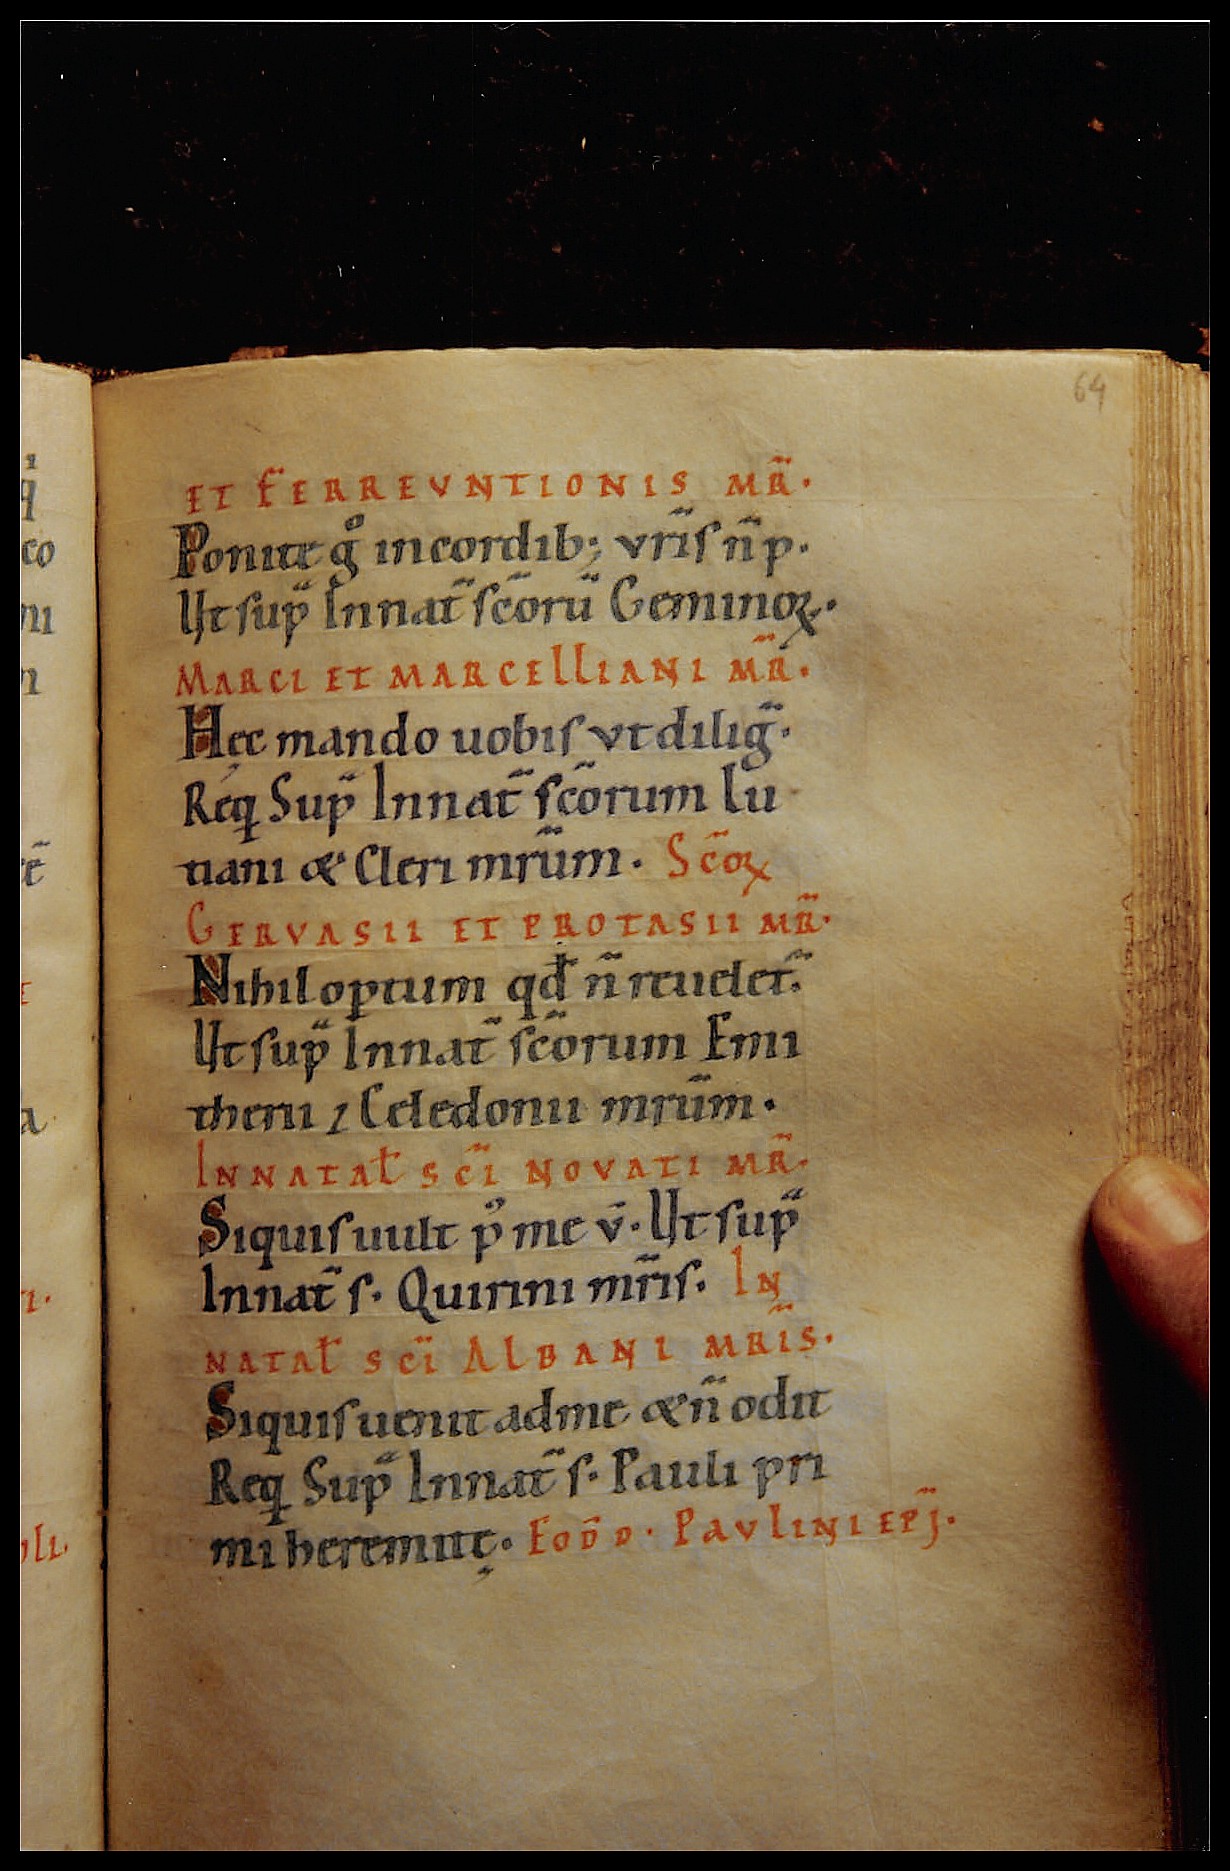 64
ET FERREVNTIONIS MR̃.
Ponite g̊ in cordib; vr̃is ñ p.
Ut sup̃ In nat̃ sc̃orũ Geminoꝝ.
MARCI ET MARCELLIANI MR̃.
Hęc mando uobis vt dilig̃.
Req̃ Sup̃ In nat̃ sc̃orum Lu
tiani & Cleri mr̃um. Sc̃oꝝ
GERVASII ET PROTASII MR̃.
Nihil optum qđ ñ reuelet̃.
Ut sup̃ In nat̃ sc̃orum Emi
therii ⁊ Celedonii mr̃um.
IN NATAL̃ SC̃I NOVATI MR̃.
Siquis uult p̃ me ṽ. Ut sup̃
In nat̃ s. Quirini mr̃is. IN
NATAL̃ SC̃I ALBANI MR̃IS.
Siquis uenit ad me & ñ odit
Req̃ Sup̃ In nat̃ s. Pauli pri
mi heremitę. EOD̃ D. PAVLINI EPĨ.